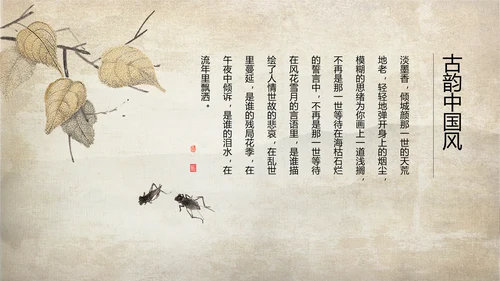 古韵中国风
淡墨香，倾城颜那一世的天荒
地老，轻轻地弹开身上的烟尘，
模糊的思绪为你画上一道浅搁，
不再是那一世等待在海枯石烂
的誓言中，不再是那一世等待
在风花雪月的言语里，是谁描
绘了人情世故的悲哀，在乱世
里蔓延，是谁的残局花季，在
午夜中倾诉，是谁的泪水，在
流年里飘洒。